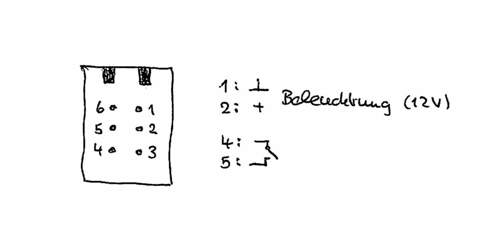 6 1
5 2
4 3
1: ⊥
2: + Beleuchtung (12V)
4:
5: